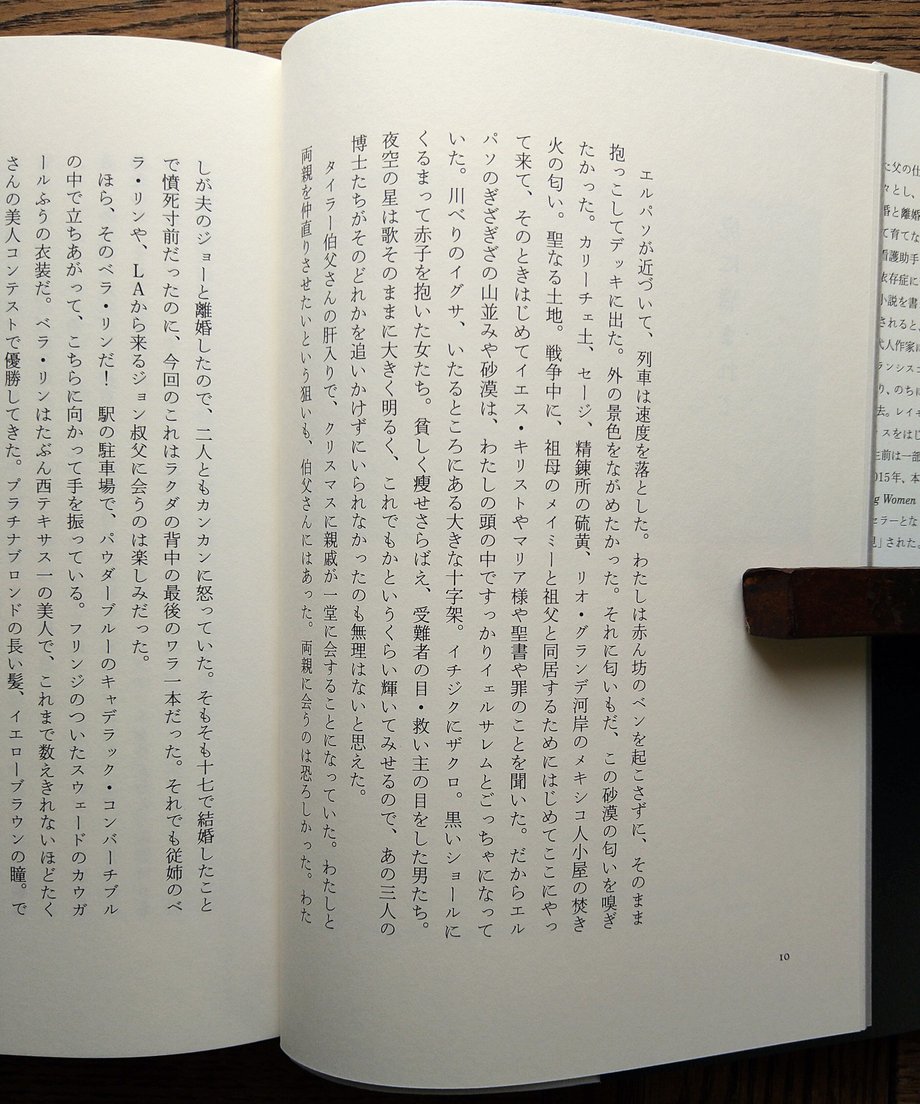 エルパソが近づいて、列車は速度を落とした。わたしは赤ん坊のベンを起こさずに、そのまま
抱っこしてデッキに出た。外の景色をながめたかった。それに匂いもだ、この砂漠の匂いを嗅ぎ
たかった。カリーチェ土、セージ、精錬所の硫黄、リオ・グランデ河岸のメキシコ人小屋の焚き
火の匂い。聖なる土地。戦争中に、祖母のメイミーと祖父と同居するためにはじめてここにやっ
て来て、そのときはじめてイエス・キリストやマリア様や聖書や罪のことを聞いた。だからエル
パソのぎざぎざの山並みや砂漠は、わたしの頭の中ですっかりイェルサレムとごっちゃになって
いた。川べりのイグサ、いたるところにある大きな十字架。イチジクにザクロ。黒いショールに
くるまって赤子を抱いた女たち。貧しく痩せさらばえ、受難者の目・救い主の目をした男たち。
夜空の星は歌そのままに大きく明るく、これでもかというくらい輝いてみせるので、あの三人の
博士たちがそのどれかを追いかけずにいられなかったのも無理はないと思えた。
タイラー伯父さんの肝入りで、クリスマスに親戚が一堂に会することになっていた。わたしと
両親を仲直りさせたいという狙いも、伯父さんにはあった。両親に会うのは恐ろしかった。わた
10
しが夫のジョーと離婚したので、二人ともカンカンに怒っていた。そもそも十七で結婚したこと
で憤死寸前だったのに、今回のこれはラクダの背中の最後のワラ一本だった。それでも従姉のベ
ラ・リンや、LAから来るジョン叔父に会うのは楽しみだった。
ほら、そのベラ・リンだ! 駅の駐車場で、パウダーブルーのキャデラック・コンバーチブル
の中で立ちあがって、こちらに向かって手を振っている。フリンジのついたスウェードのカウガ
ールふうの衣装だ。ベラ・リンはたぶん西テキサス一の美人で、これまで数えきれないほどたく
さんの美人コンテストで優勝してきた。プラチナブロンドの長い髪、イエローブラウンの瞳。で
た父の仕
々とし、
婚と離婚
て育てな
看護助手
依存症に
小説を書
されると、
代人作家に
ランシスコ
り、のちに
去。レイモ
ィスをはじ
生前は一部
015年、本
g Women
セラーとな
見」された。